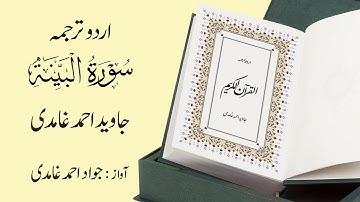 اردو ترجمہ
سُوْرَةُ الْبَيِّنَةِ
جاوید احمد غامدی
آواز : جواد احمد غامدی
اردو ترجمہ
القرآن الکریم
جاوید احمد غامدی